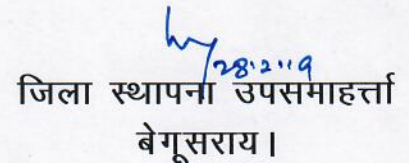 28.2.19
जिला स्थापना उपसमाहर्त्ता
बेगूसराय।